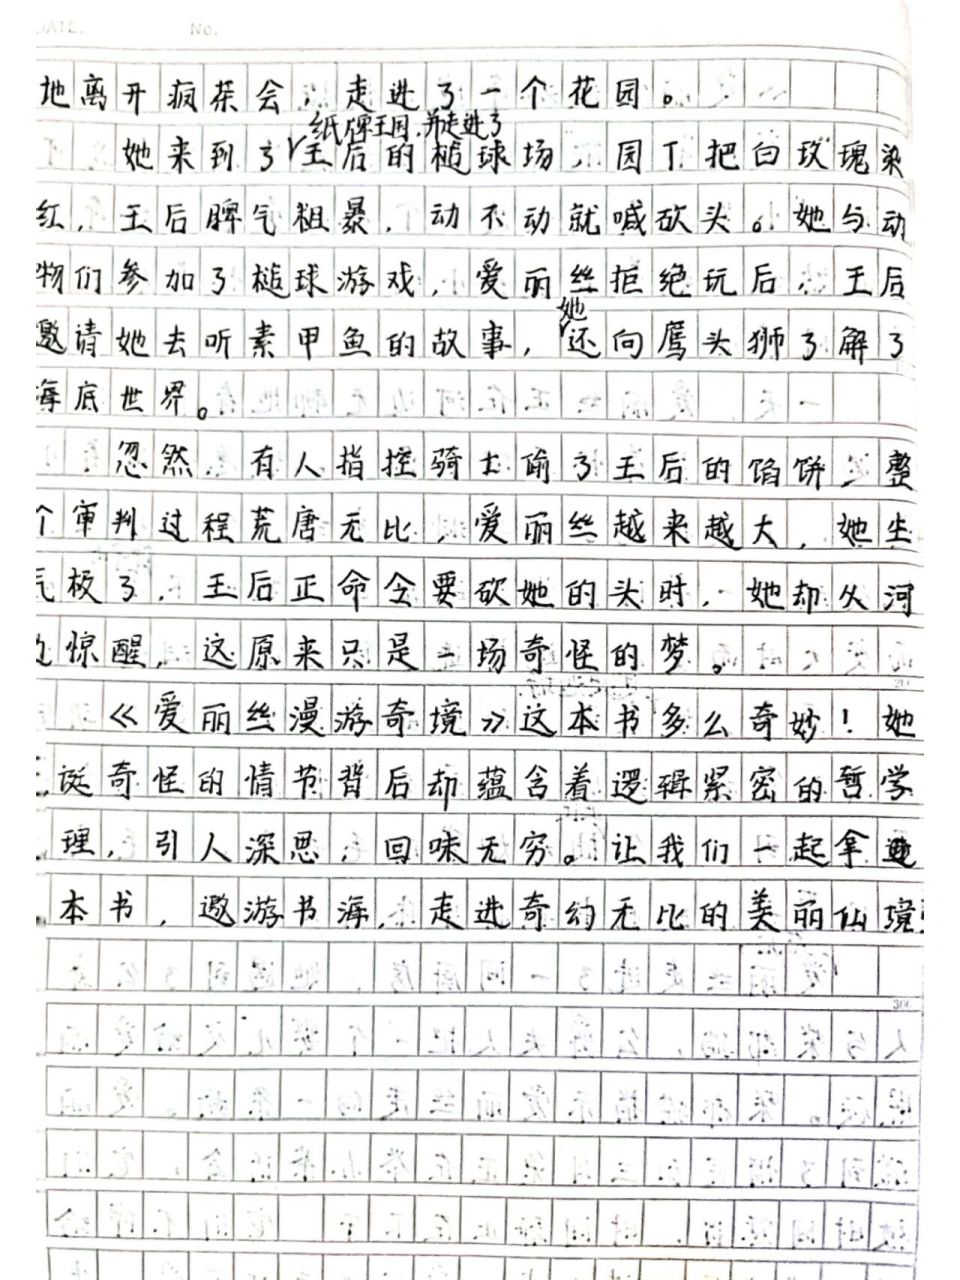 DATE. No.
地离开疯茶会，走进了一个花园。
纸牌王国，并走进了
她来到了王后的槌球场，园丁把白玫瑰染
红，王后脾气粗暴，动不动就喊砍头。她与动
物们参加了槌球游戏，爱丽丝拒绝玩后，王后
她
邀请她去听素甲鱼的故事，还向鹰头狮了解了
海底世界。
忽然，有人指控骑士偷了王后的馅饼，整
个审判过程荒唐无比，爱丽丝越来越大，她生
气极了，王后正命令要砍她的头时，她却从河
边惊醒，这原来只是一场奇怪的梦。
《爱丽丝漫游奇境》这本书多么奇妙！她
诞奇怪的情节背后却蕴含着逻辑紧密的哲学
理，引人深思，回味无穷。让我们一起拿
本书，遨游书海，走进奇幻无比的美丽仙境
300